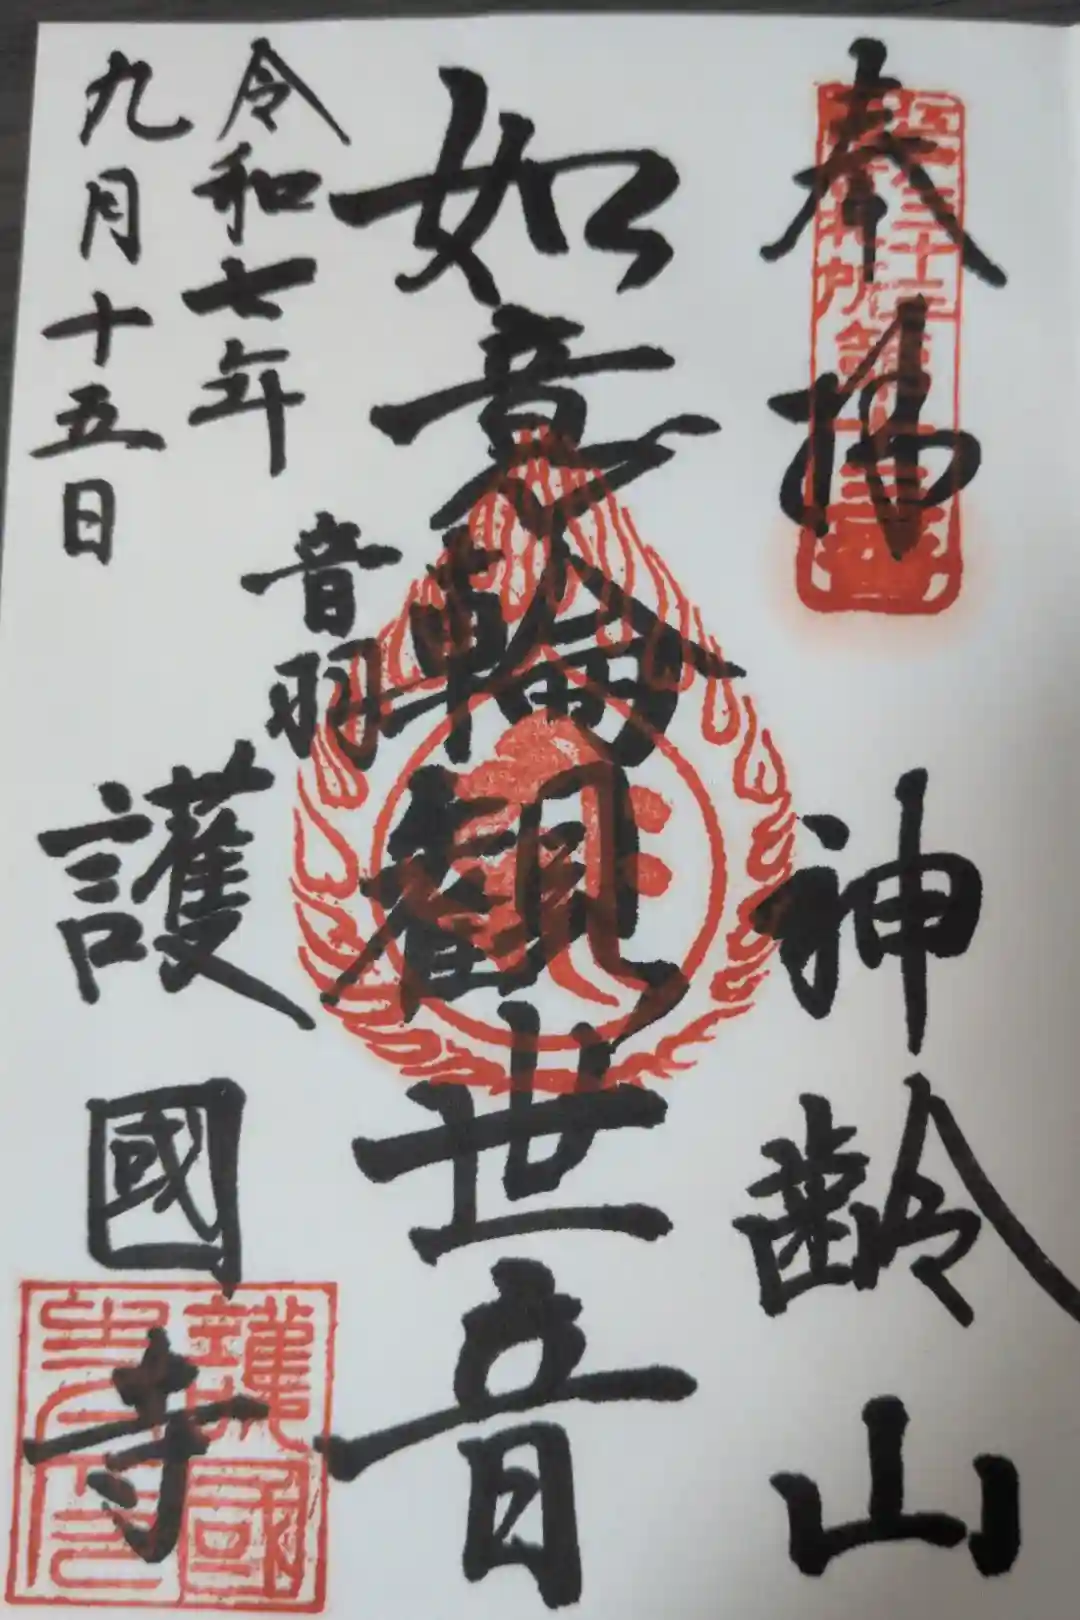 奉拝
神齢山
如意輪観世音
令和七年
九月十五日
音羽
護國寺
護國寺印